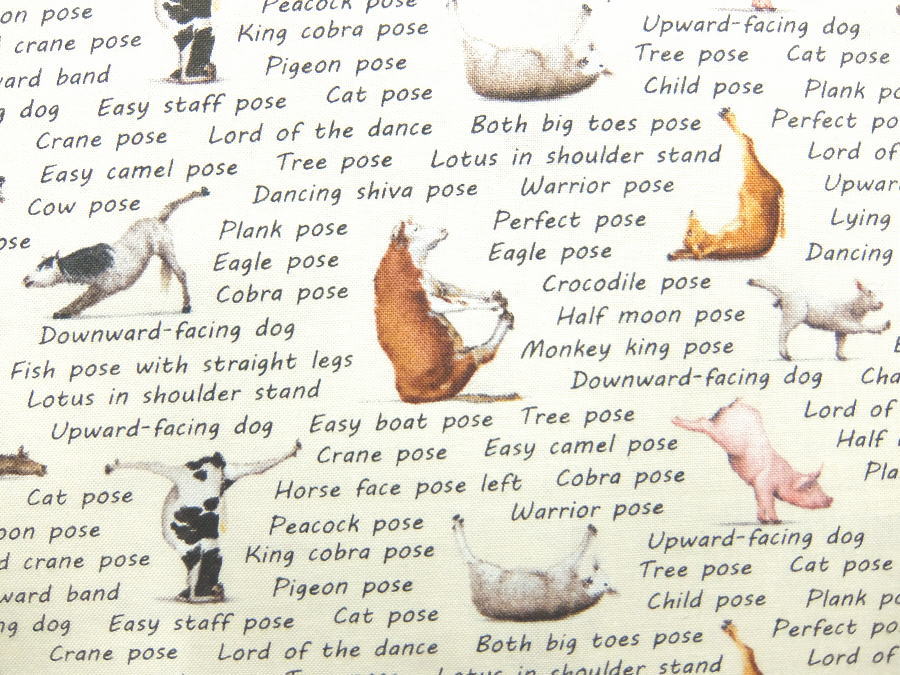 on pose Peacock pose
crane pose King cobra pose Upward-facing dog
ward band Pigeon pose Tree pose Cat pose
g dog Easy staff pose Cat pose Child pose Plank po
Crane pose Lord of the dance Both big toes pose Perfect po
Easy camel pose Tree pose Lotus in shoulder stand Lord of
Cow pose Dancing shiva pose Warrior pose Upwar
ose Plank pose Perfect pose Lying
Eagle pose Eagle pose Dancing
Cobra pose Crocodile pose
Downward-facing dog Half moon pose
Fish pose with straight legs Monkey king pose
Lotus in shoulder stand Downward-facing dog Cha
Upward-facing dog Easy boat pose Tree pose Lord of
Crane pose Easy camel pose Half
Cat pose Horse face pose left Cobra pose Pla
oon pose Peacock pose Warrior pose
d crane pose King cobra pose Upward-facing dog
ward band Pigeon pose Tree pose Cat pose
ng dog Easy staff pose Cat pose Child pose Plank po
Crane pose Lord of the dance Both big toes pose Perfect po
Lotus in shoulder stand Lord of